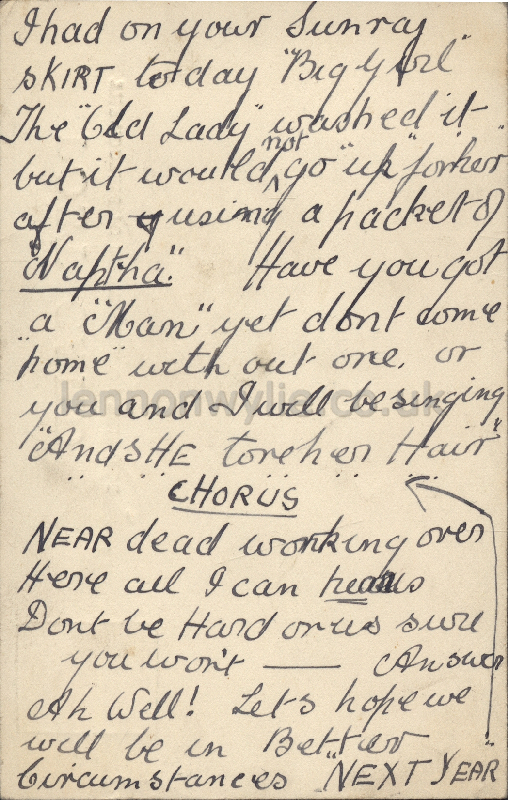 I had on your Sunray
SKIRT to day "Big Girl"
The "Old Lady" washed it
but it would not go "up" for her
after using a packet of
"Naptha." Have you got
a "Man" yet dont come
"home" with out one. or
you and I will be singing
"And SHE tore her Hair"
CHORUS
NEAR dead working over
Here all I can
Dont be Hard on us sure
you won't — Answer
Ah Well! Let's hope we
will be in Better
Circumstances "NEXT YEAR"
lennonwylie.co.uk